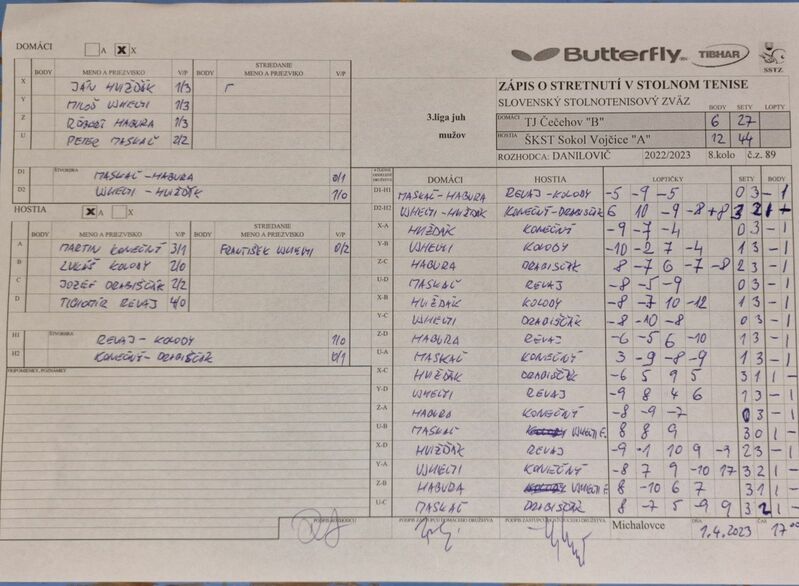 DOMÁCI A X X
Butterfly TIBHAR SSTZ
BODY MENO A PRIEZVISKO V/P BODY STRIEDANIE MENO A PRIEZVISKO V/P
X JÁN HVIŽĎÁK 1/3
Y MILOŠ UJHELYI 1/3
Z RÓBERT HABURA 1/3
U PETER MASKAĽ 2/2
ZÁPIS O STRETNUTÍ V STOLNOM TENISE
SLOVENSKÝ STOLNOTENISOVÝ ZVÄZ BODY SETY LOPTY
3.liga juh mužov
DOMÁCI TJ Čečehov "B" 6 27
HOSTIA ŠKST Sokol Vojčice "A" 12 44
ROZHODCA: DANILOVIČ 2022/2023 8.kolo č.z. 89
D1 ŠTVORHRA MASKAĽ-HABURA 0/1
D2 UJHELYI-HVIŽĎÁK 1/0
HOSTIA X A X
BODY MENO A PRIEZVISKO V/P BODY STRIEDANIE MENO A PRIEZVISKO V/P
A MARTIN KONEČNÝ 3/1 FRANTIŠEK UJHELYI 0/2
B LUKÁŠ KOLODY 2/0
C JOZEF DRABIŠČÁK 2/2
D TICHOMÍR REVAJ 4/0
H1 ŠTVORHRA REVAJ-KOLODY 1/0
H2 KONEČNÝ-DRABIŠČÁK 0/1
PRIPOMIENKY, POZNÁMKY
DOMÁCI HOSTIA LOPTIČKY SETY BODY
D1-H1 MASKAĽ-HABURA REVAJ-KOLODY -5 -9 -5 0 3 - 1
D2-H2 UJHELYI-HVIŽĎÁK KONEČNÝ-DRABIŠČÁK 6 10 -9 -8 +8 3 2 1 -
X-A HVIŽĎÁK KONEČNÝ -9 -7 -4 0 3 - 1
Y-B UJHELYI KOLODY -10 -2 7 -4 1 3 - 1
Z-C HABURA DRABIŠČÁK 8 -7 6 -7 -8 2 3 - 1
U-D MASKAĽ REVAJ -8 -5 -9 0 3 - 1
X-B HVIŽĎÁK KOLODY -8 -7 10 -12 1 3 - 1
Y-C UJHELYI DRABIŠČÁK -8 -10 -8 0 3 - 1
Z-D HABURA REVAJ -6 -5 6 -10 1 3 - 1
U-A MASKAĽ KONEČNÝ 3 -9 -8 -9 1 3 - 1
X-C HVIŽĎÁK DRABIŠČÁK -6 5 9 5 3 1 1 -
Y-D UJHELYI REVAJ -9 8 4 6 1 3 - 1
Z-A HABURA KONEČNÝ -8 -9 -7 0 3 - 1
U-B MASKAĽ UJHELYI F. 8 8 9 3 0 1 -
X-D HVIŽĎÁK REVAJ -9 -1 10 9 2 3 - 1
Y-A UJHELYI KONEČNÝ -8 7 9 -10 17 3 2 1 -
Z-B HABURA UJHELYI F. 8 -10 6 7 3 1 1 -
U-C MASKAĽ DRABIŠČÁK 8 -7 5 -9 9 3 2 1 -
PODPIS ROZHODCU PODPIS ZÁSTUPCU DOMÁCEHO DRUŽSTVA PODPIS ZÁSTUPCU HOSŤUJÚCEHO DRUŽSTVA Michalovce DŇA 1.4.2023 ČAS 17 00